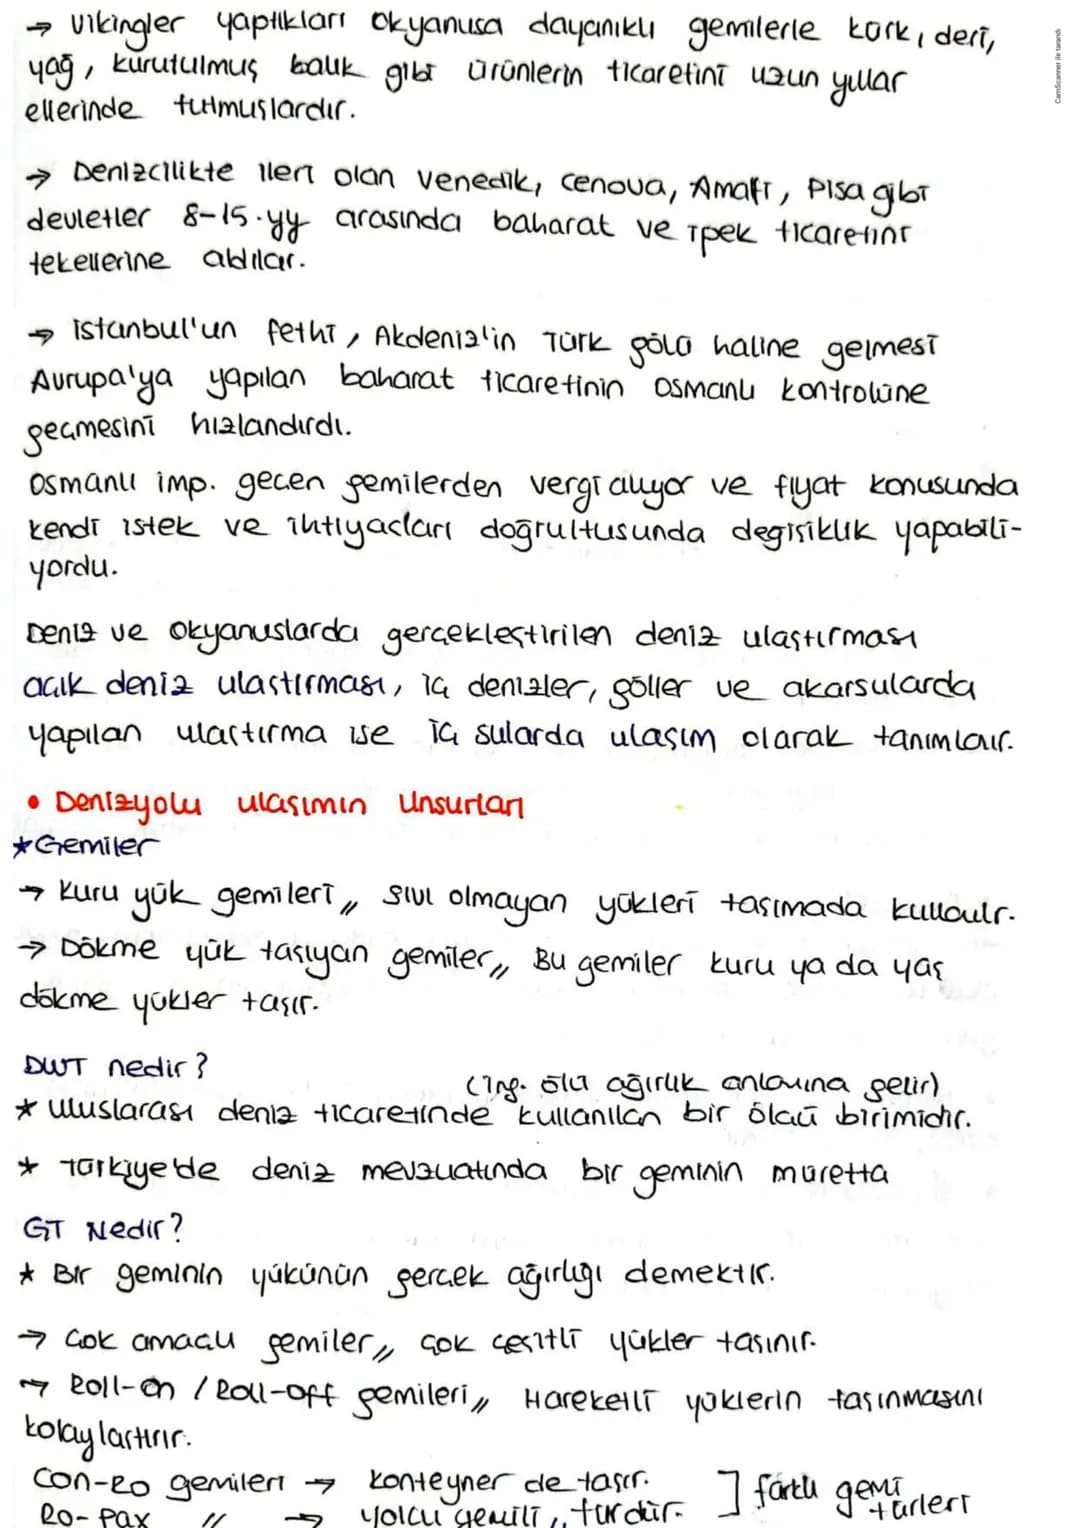 → Vikingler yaptıkları okyanusa dayanıklı gemilerle kürk, deri,
yağ, kurutulmuş balık gibi ürünlerin ticaretini uzun yıllar
ellerinde tutmuşlardır.
→ Denizcilikte ileri olan Venedik, Cenova, Amalfi, Pisa gibi
devletler 8-15.yy arasında baharat ve ipek ticaretini
tekellerine aldılar.
→ İstanbul'un fethi, Akdeniz'in Türk gölü haline gelmesi
Avrupa'ya yapılan baharat ticaretinin Osmanlı kontrolüne
geçmesini hızlandırdı.
Osmanlı imp. geçen gemilerden vergi alıyor ve fiyat konusunda
kendi istek ve ihtiyaçları doğrultusunda değişiklik yapabili-
yordu.
Deniz ve okyanuslarda gerçekleştirilen deniz ulaştırması
açık deniz ulaştırması, iç denizler, göller ve akarsularda
yapılan ulaştırma ise iç sularda ulaşım olarak tanımlanır.
• Denizyolu ulaşımın Unsurları
★Gemiler
→ Kuru yük gemileri,, sıvı olmayan yükleri taşımada kullanılır.
→ Dökme yük taşıyan gemiler,, Bu gemiler kuru ya da yaş
dökme yükler taşır.
DWT nedir?
(İng. ölü ağırlık anlamına gelir)
★ Uluslarası deniz ticaretinde kullanılan bir ölçü birimidir.
★ Türkiye'de deniz mevzuatında bir geminin müretta
GT Nedir?
★ Bir geminin yükünün gerçek ağırlığı demektir.
→ Çok amaçlı gemiler,, çok çeşitli yükler taşınır.
→ Roll-on / Roll-off gemileri,, Hareketli yüklerin taşınmasını
kolaylaştırır.
Con-Ro gemileri → konteyner de taşır. ] farklı gemi
türleri
Ro-Pax " → yolcu gemili,, türdür.
CamScanner ile tarandı